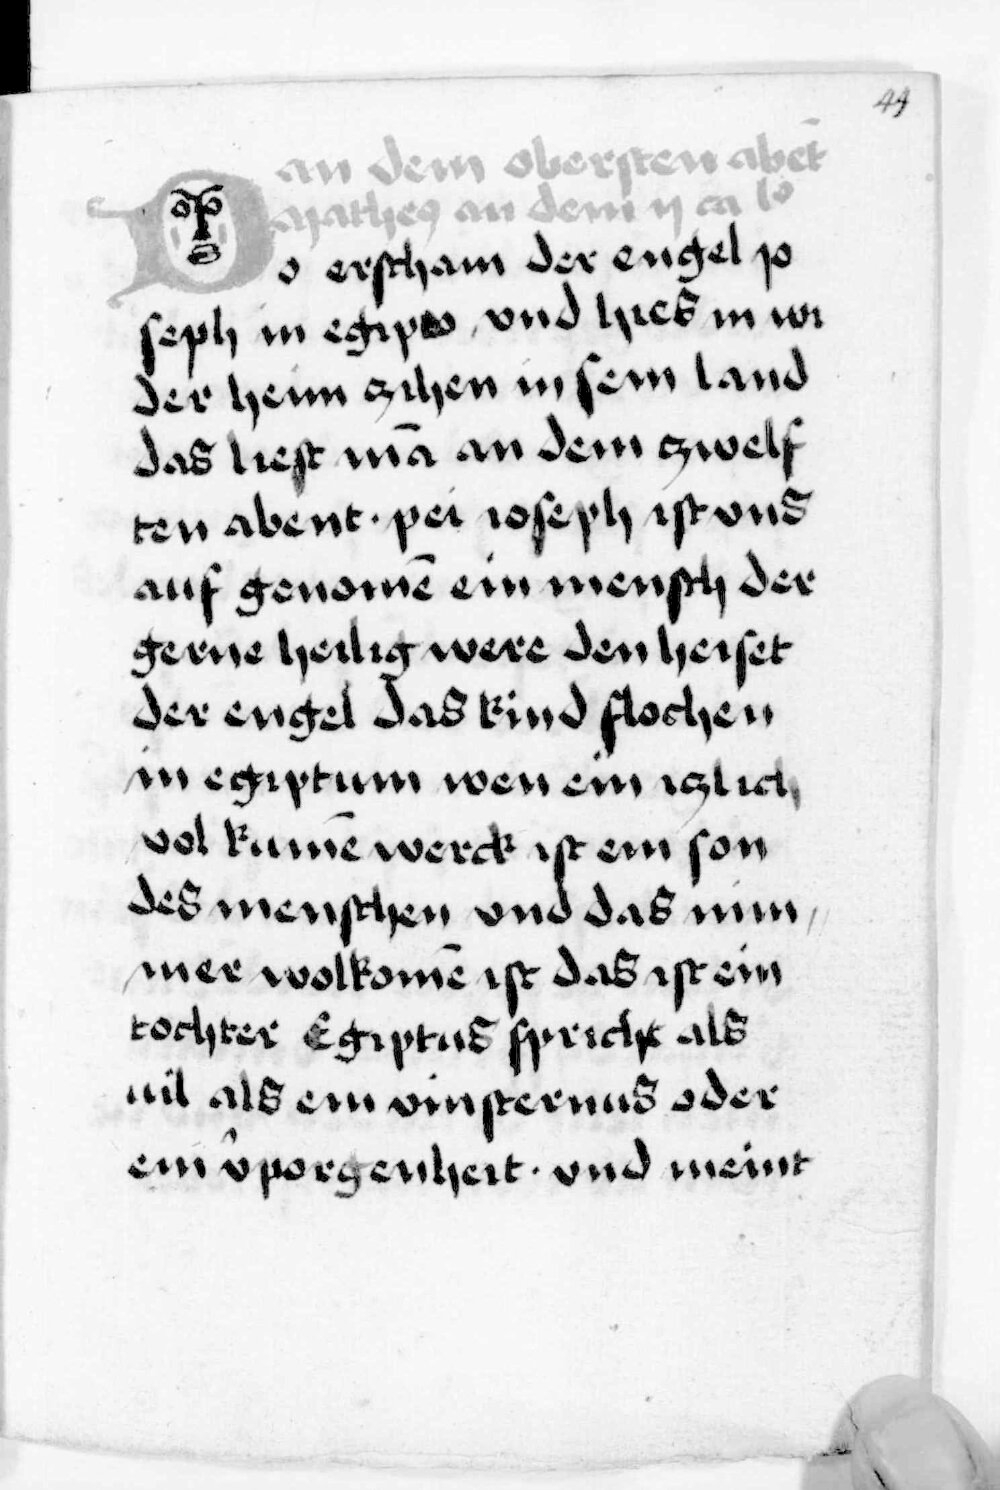 44
an dem obersten abēt
Matheꝯ an dem ij ca lo
Do erscham der engel jo
seph in egipto vnd hies in wi
der heim zihen in sein land
das liest mā an dem zwelf
ten abent · pei ioseph ist vns
auf genomē ein mensch der
gerne heilig were den heiset
der engel das kind flochen
in egiptum wen ein izlich
vol kumē werck ist ein son
des menschen vnd das nim
mer wolkomē ist das ist ein
tochter Egiptus spricht als
uil als ein vinsternus oder
ein v̂porgenheit · vnd meint